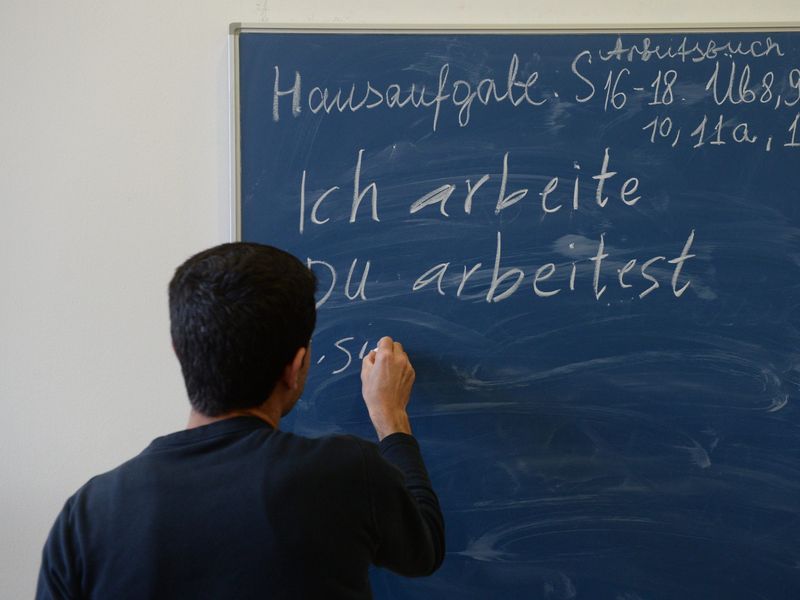 Arbeitsbuch
Hausaufgabe. S 16-18. Üb 8, 9
10, 11a, 1
Ich arbeite
Du arbeitest